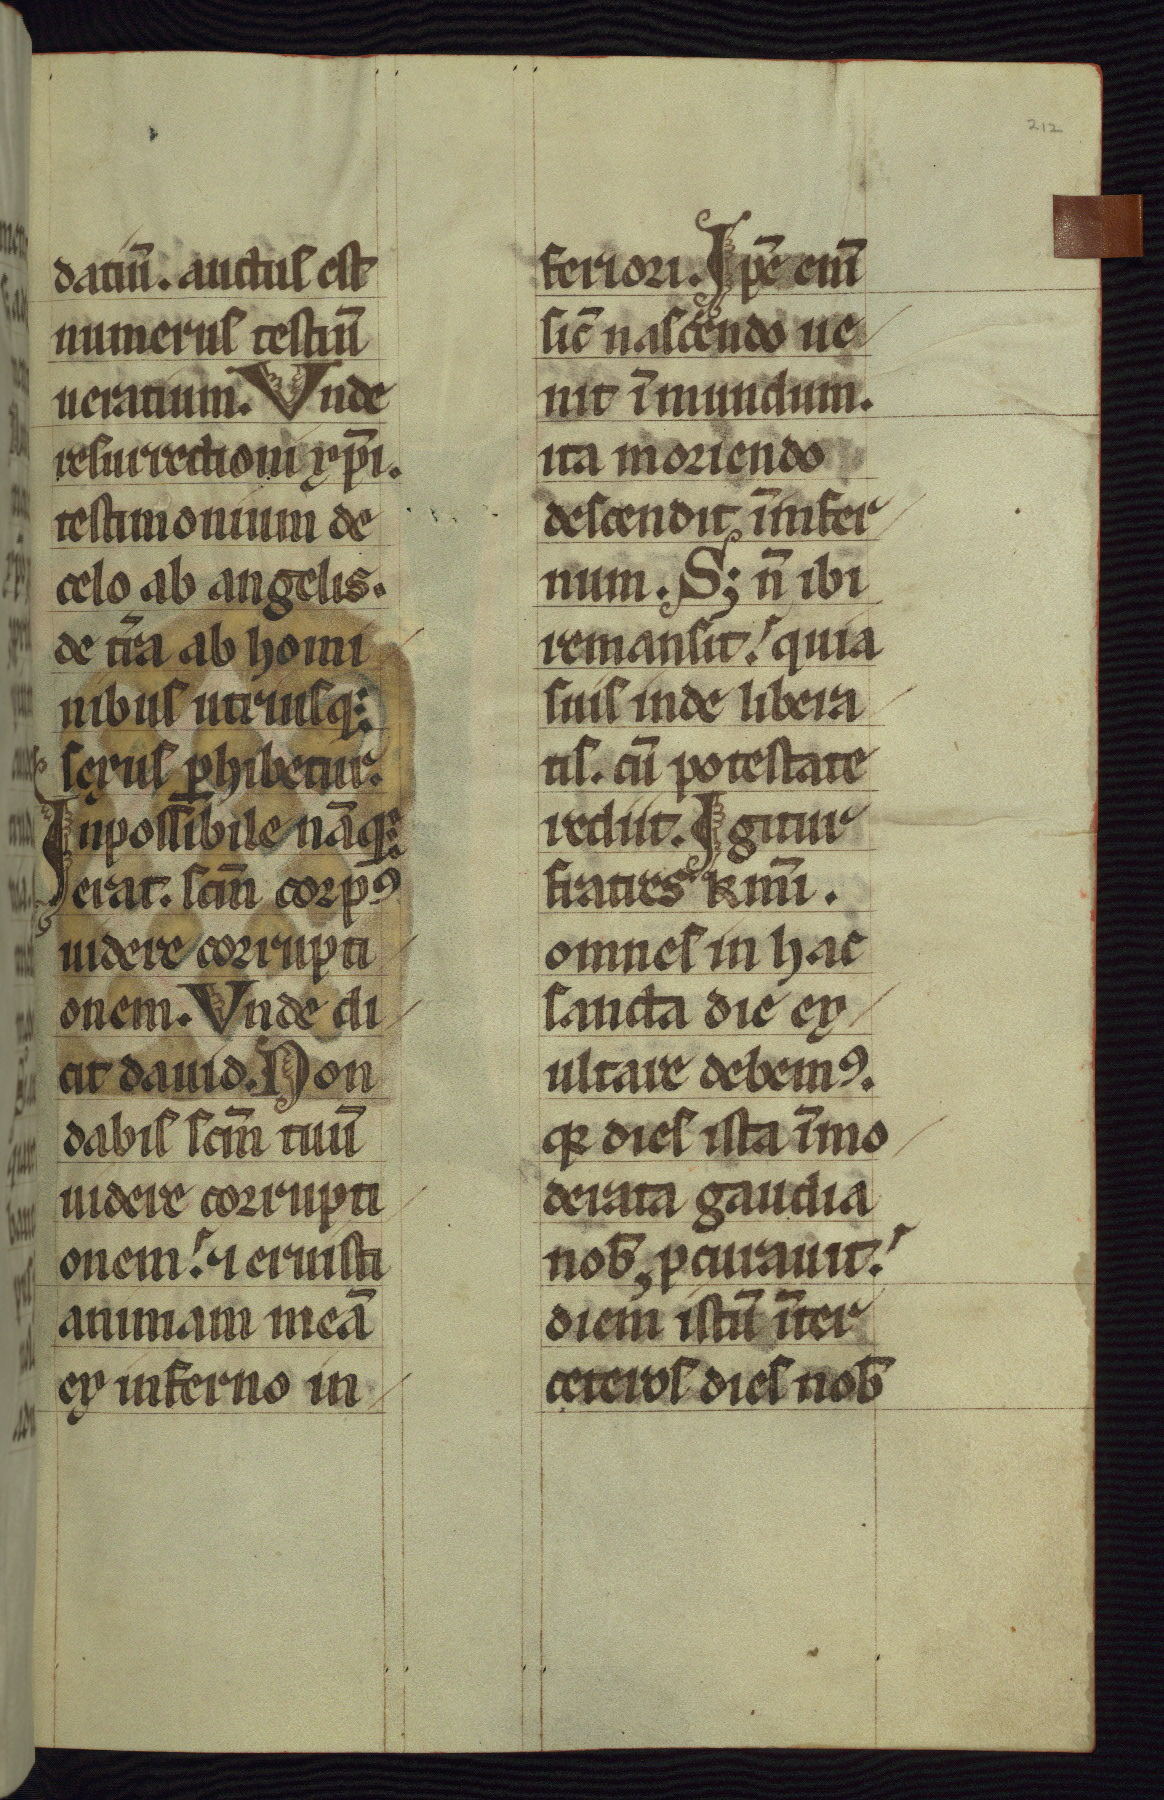 212
datiū. auctus est
numerus testiū
ueratium. Vnde
resurrectioni xp̄i.
testimonium de
celo ab angelis.
de t̄ra ab homi
nibus utriusq;
sexus ꝑhibetur.
Inpossibile nāq;
erat. sc̄m corpꝰ
uidere corrupti
onem. Vnde di
cit dauid. Non
dabis sc̄m tuū
uidere corrupti
onem. ⁊ eruisti
animam meā
ex inferno in
feriori. Ip̄e enī
sic̄ nascendo ue
nit ī mundum.
ita moriendo
descendit, ī infer
num. S; n̄ ibi
remansit. quia
suis inde libera
tis. cū potestate
rediit. Igitur
fratres k̄mi.
omnes in hac
sancta die ex
ultare debemꝰ.
qꝛ dies ista īmo
derata gaudia
nob̄, ꝓcurauit.
diem istū īter
ceteros dies nob̄